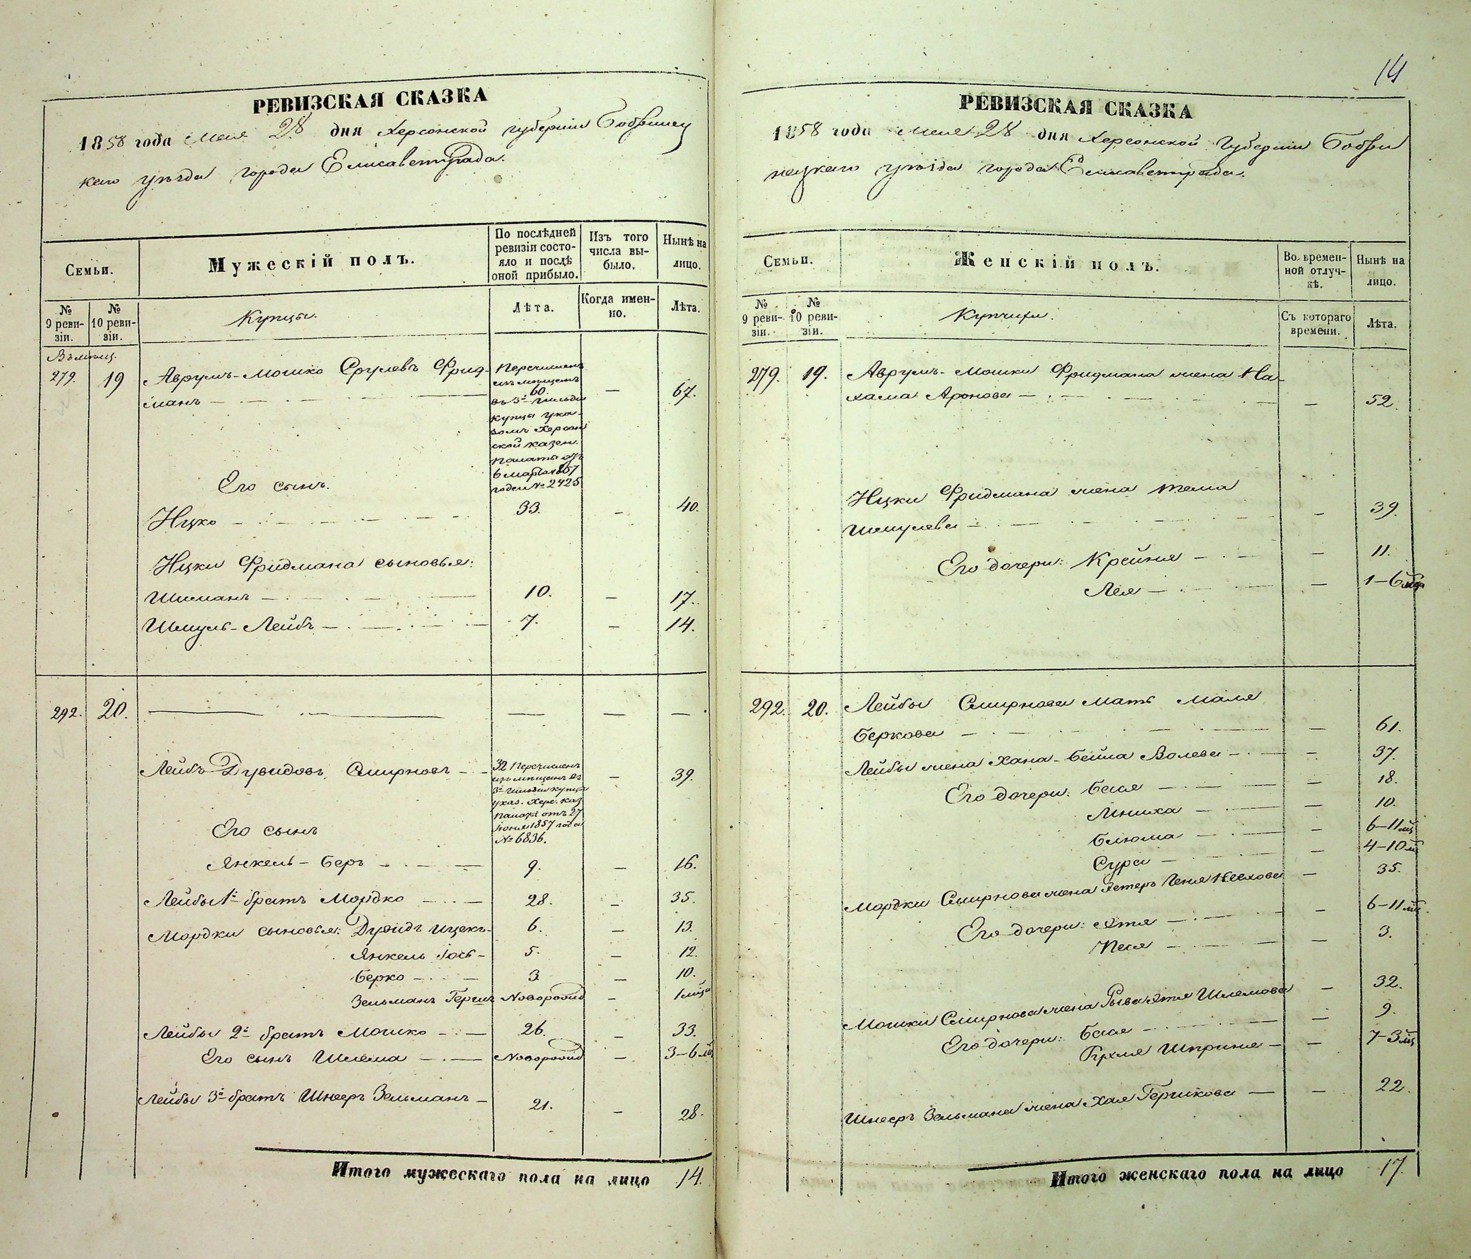 РЕВИЗСКАЯ СКАЗКА
1858 года Мая 28 дня Херсонской губерніи Бобринец
каго уѣзда города Елисаветграда.
Семьи.
Мужескій полъ.
По послѣдней ревизіи состояло и послѣ оной прибыло.
Изъ того числа выбыло.
Нынѣ на лицо.
№ 9 ревизіи.
№ 10 ревизіи.
Купцы.
Лѣта.
Когда именно.
Лѣта.
279. 19 Аврумъ-Мошко Сруlевъ Фрид-
манъ — 60. — 67.
Перечисленъ
изъ мѣщанъ
въ 3ю гильдію
купцы ука-
зомъ Херсон
ской казен.
Палаты отъ
6 марта 1857
года № 2425
Его сынъ.
Ицко — 33. — 40.
Ицки Фридмана сыновья:
Шиманъ — 10. — 17.
Шмуль-Лейбъ — 7. — 14.
292. 20. — — — —
Лейбъ Дувидовъ Смирновъ — 32 — 39.
Перечисленъ
изъ мѣщанъ въ
3ю гильдію купцы
указ. Херс. каз.
Палаты отъ 27
Іюня 1857 года
№ 6836.
Его сынъ
Янкель-Беръ — 9. — 16.
Лейбы 1й братъ Мордко — 28. — 35.
Мордки сыновья: Дувидъ Ицекъ — 6. — 13.
Янкель Іось — 5. — 12.
Берко — 3. — 10.
Зельманъ Герш Новорожд — 1 мѣс
Лейбы 2й братъ Мошко — 26. — 33.
Его сынъ Шлема — Новорожд — 3-6 мѣ
Лейбы 3й братъ Шнееръ Зельманъ — 21. — 28.
Итого мужескаго пола на лицо 14.
14
РЕВИЗСКАЯ СКАЗКА
1858 года Мая 28 дня Херсонской Губерніи Бобри
нецкаго уѣзда города Елисаветграда.
Семьи.
Женскій полъ.
Во временной отлучкѣ.
Нынѣ на лицо.
№ 9 ревизіи.
№ 10 ревизіи.
Купчихи.
Съ котораго времени.
Лѣта.
279. 19. Аврумъ-Мошки Фридмана жена На-
хама Аронова — — 52.
Ицки Фридмана жена Тема
Шмулева — — 39.
Его дочери: Крейня — — 11.
Лея — — 1-6 мѣс
292. 20. Лейбы Смирнова мать Маля
Беркова — — 61.
Лейбы жена Хана-Бейла Волева — — 37.
Его дочери: Бася — — 18.
Мниха — 10.
Блюма — — 6-11 мѣ
Сура — — 4-10 мѣ
Мордки Смирнова жена Эстеръ Геня — 35.
Его дочери: Этя — — 6-11 мѣ
Песя — — 3.
Мошки Смирнова жена Рыва Этя Шлемова — 32.
Его дочери: Бася — — 9.
Рухля Шприня — — 7-3 мѣ
Шнееръ Зельмана жена Хая Гершкова — — 22.
Итого женскаго пола на лицо 17.